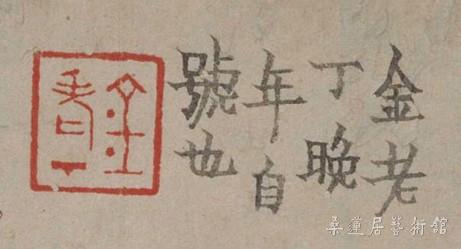 金老
丁晚
年自
號也
桑蓮居藝術館